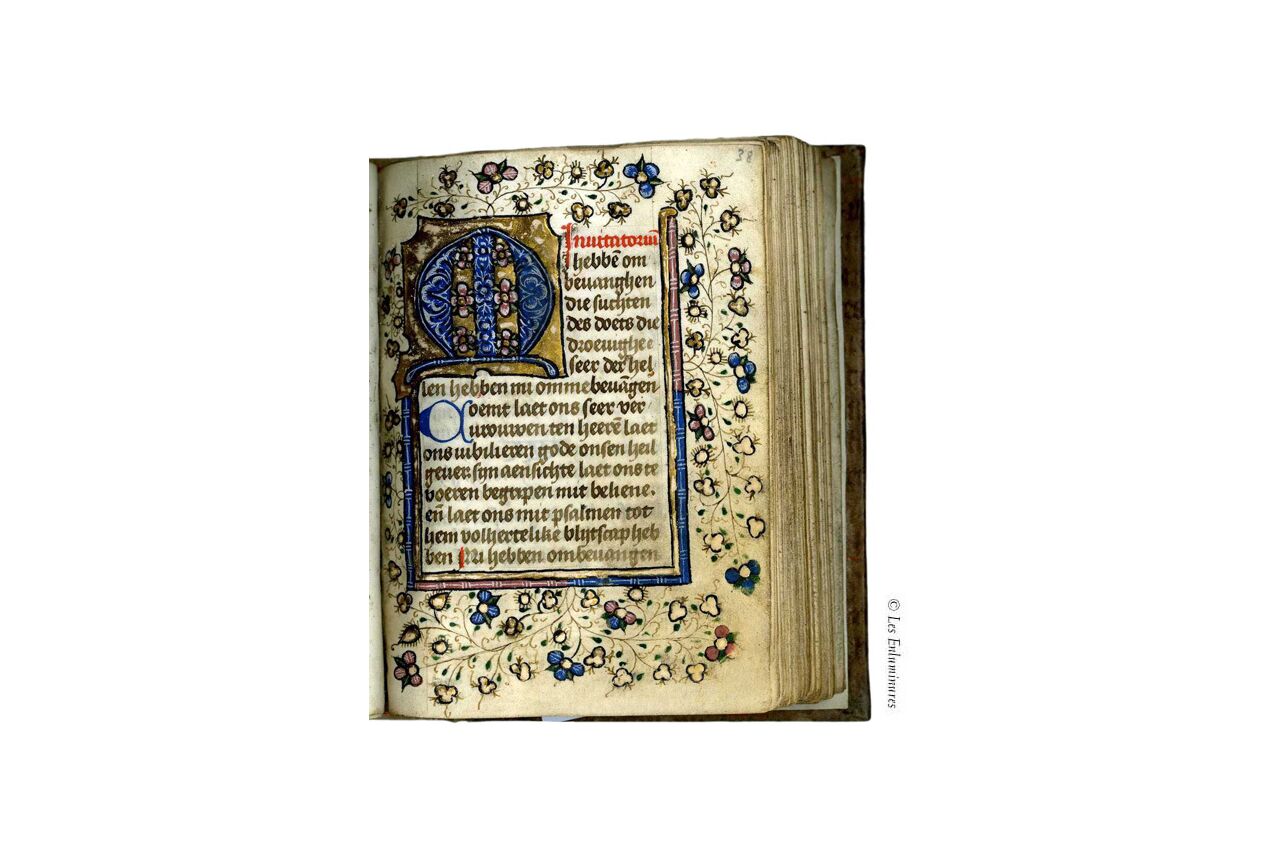 38
Inuitatoriū
M hebbē om
beuanghen
die suchten
des doets die
droeuighee
seer der hel
len hebben mi omme beuāgen
Coemt laet ons seer ver
urouwen ten heerē laet
ons iubilieren gode onsen heil
geuer sijn aensichte laet ons te
voeren begripen mit beliene.
eñ laet ons mit psalmen tot
hem volhertelike blijtscap heb
ben Mi hebben ombeuangen
© Les Enluminures